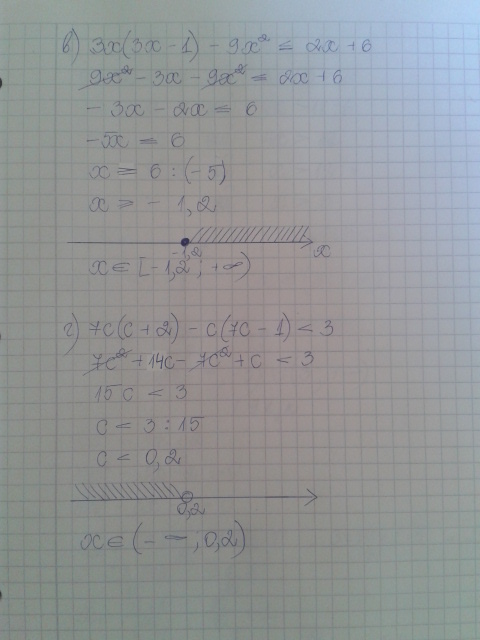 в) 3x(3x - 1) - 9x² ≤ 2x + 6
9x² - 3x - 9x² ≤ 2x + 6
- 3x - 2x ≤ 6
-5x ≤ 6
x ≥ 6 : (-5)
x ≥ - 1,2
-1,2 x
x ∈ [-1,2 ; +∞)
г) 7c(c + 2) - c(7c - 1) < 3
7c² + 14c - 7c² + c < 3
15c < 3
c < 3 : 15
c < 0,2
0,2
x ∈ (- ∞ ; 0,2)